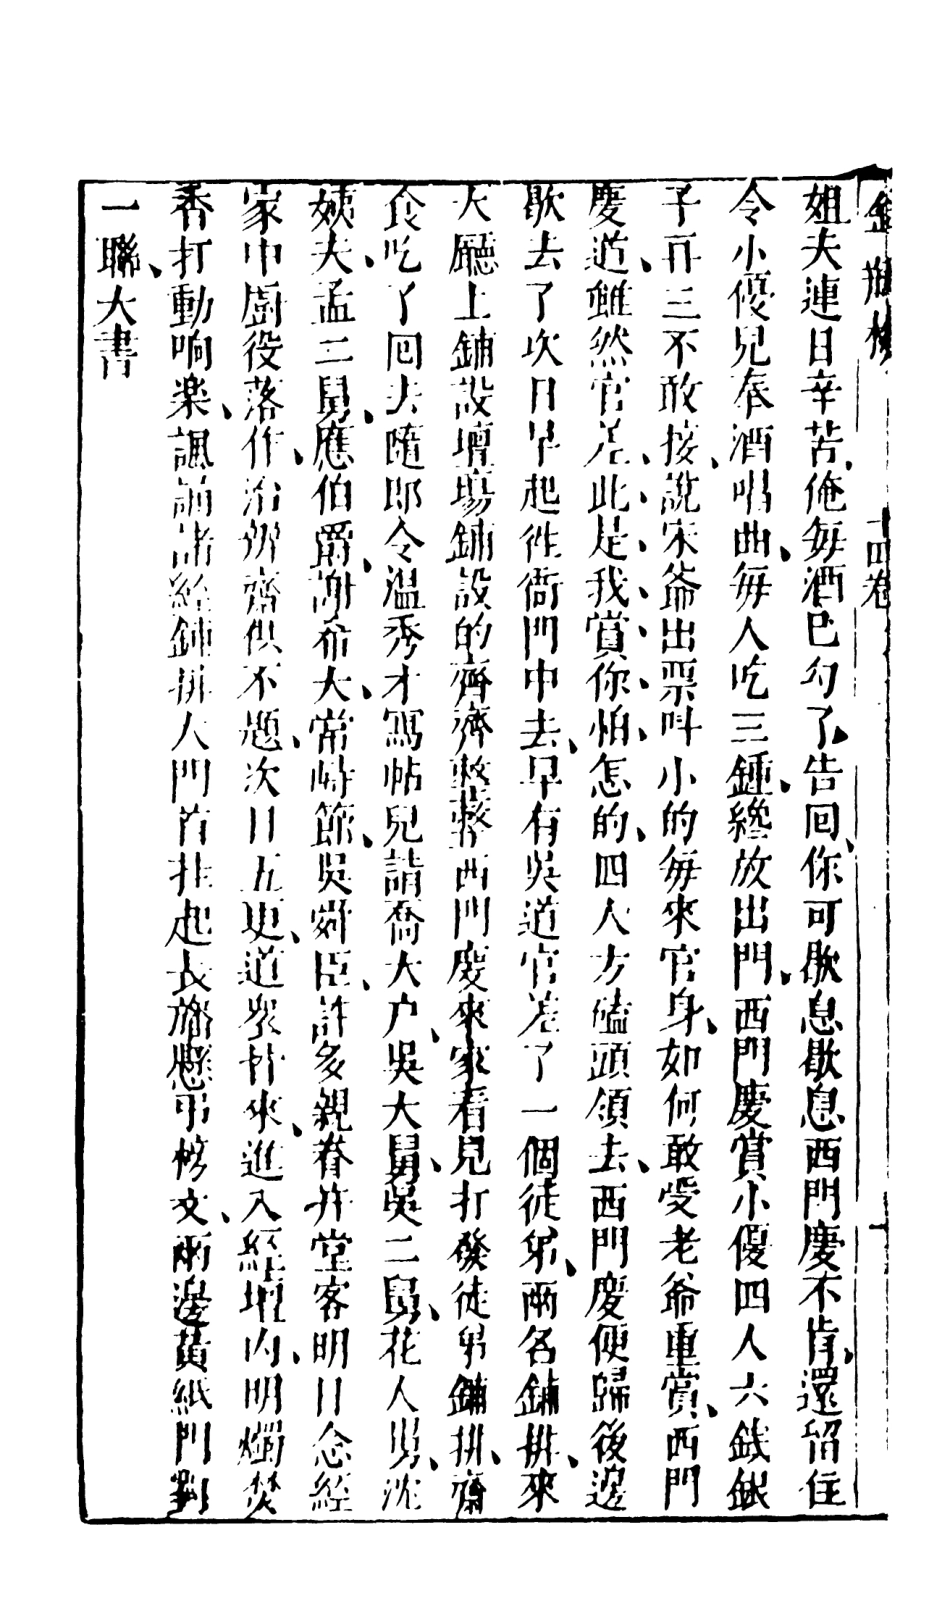 金瓶梅 十四卷
姐夫連日辛苦、俺每酒已勾了、告回、你可歇息歇息西門慶不肯、還留住
令小優兒奉酒唱曲、每人吃三鍾、纔放出門、西門慶賞小優四人六錢銀
子再三不敢接、說宋爺出票叫小的每來官身、如何敢受老爺重賞、西門
慶道、雖然官差、此是我賞你、怕怎的、四人方磕頭領去、西門慶便歸後邊
歇去了次日早起徃衙門中去、早有吳道官差了一個徒弟、兩名鋪排、來
大廳上鋪設壇場鋪設的齊齊整整西門慶來家看見打發徒弟鋪排、齋
食吃了回去隨即令溫秀才寫帖兒請喬大户、吳大舅、吳二舅、花大舅、沈
姨夫、孟二舅、應伯爵、謝希大、常峙節、吳舜臣、許多親眷并堂客明日念經
家中厨役落作、治辦齋供不題、次日五更、道眾皆來、進入經壇內、明燭焚
香、打動响楽、諷誦諸經鋪排大門首挂起長旛懸弔榜文、兩邊黃紙門對
一聯、大書